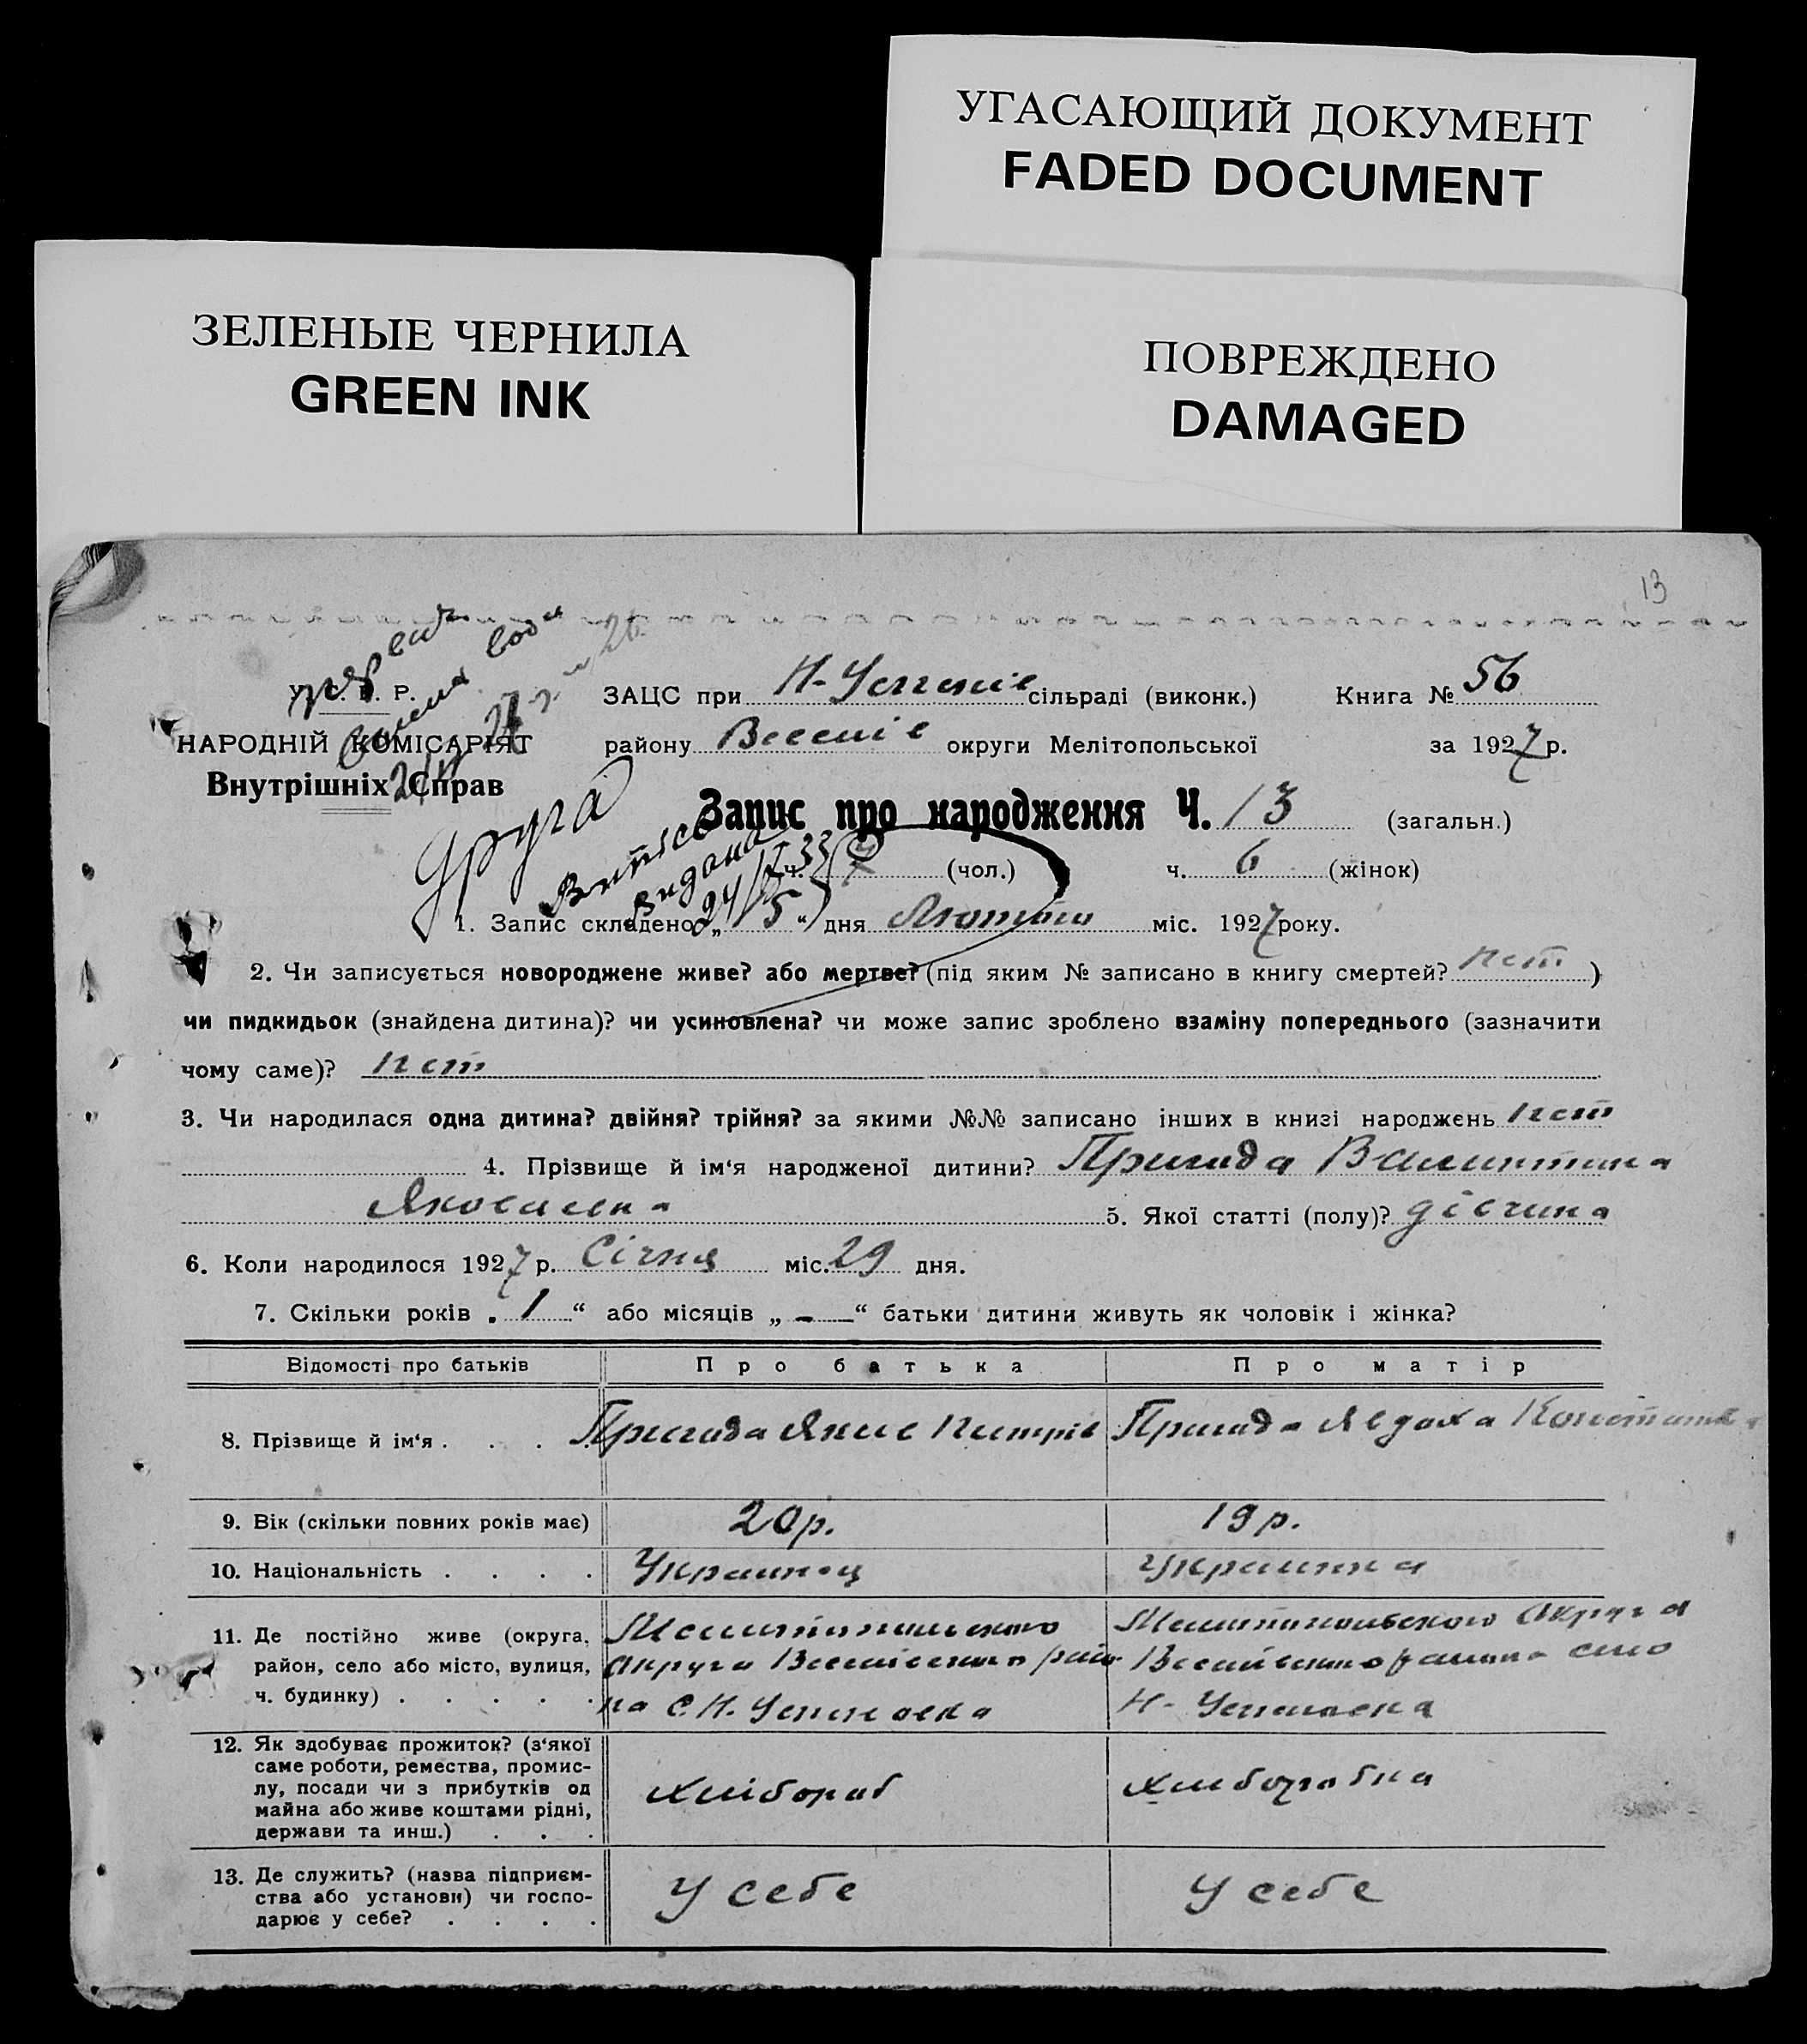 УГАСАЮЩИЙ ДОКУМЕНТ
FADED DOCUMENT
ЗЕЛЕНЫЕ ЧЕРНИЛА
GREEN INK
ПОВРЕЖДЕНО
DAMAGED
13
У. С. Р. Р.
НАРОДНІЙ КОМІСАРІЯТ
Внутрішніх Справ
ЗАЦС при Н-Успенів сільраді (виконк.) Книга № 56
району Веселів округи Мелітопольської за 1927 р.
друга
Витясь
видана
24/V 33
Запис про народження Ч. 13 (загальн.)
ч. 7 (чол.) ч. 6 (жінок)
1. Запис складено „ 5 “ дня Лютого міс. 1927 року.
2. Чи записується новороджене живе? або мертве? (під яким № записано в книгу смертей? нет )
чи пидкидьок (знайдена дитина)? чи усиновлена? чи може запис зроблено взаміну попереднього (зазначити
чому саме)? нет
3. Чи народилася одна дитина? двійня? трійня? за якими №№ записано інших в книзі народжень нет
4. Прізвище й ім‘я народженої дитини? Пригода Валинтина
Яковлевна 5. Якої статті (полу)? дівчина
6. Коли народилося 1927 р. Січня міс. 29 дня.
7. Скільки років „ 1 “ або місяців „ - “ батьки дитини живуть як чоловік і жінка?
Відомості про батьків Про батька Про матір
8. Прізвище й ім‘я . . . . Пригода Яков Пригода Явдоха
9. Вік (скільки повних років має) 20 р. 19 р.
10. Національність . . . . Украинец украинка
11. Де постійно живе (округа, район, село або місто, вулиця, ч. будинку) . . . . .
Мелитопольского
Округа Веселівского райо
на С. Н. Успеновка
Мелитопольского Округа
Веселівского района село
Н- Успеновка
12. Як здобуває прожиток? (з‘якої
саме роботи, ремества, промис-
лу, посади чи з прибутків од
майна або живе коштами рідні,
держави та инш.) . . .
хлібораб хлиборобка
13. Де служить? (назва підприєм-
ства або установи) чи госпо-
дарює у себе? . . . .
У себе У себе